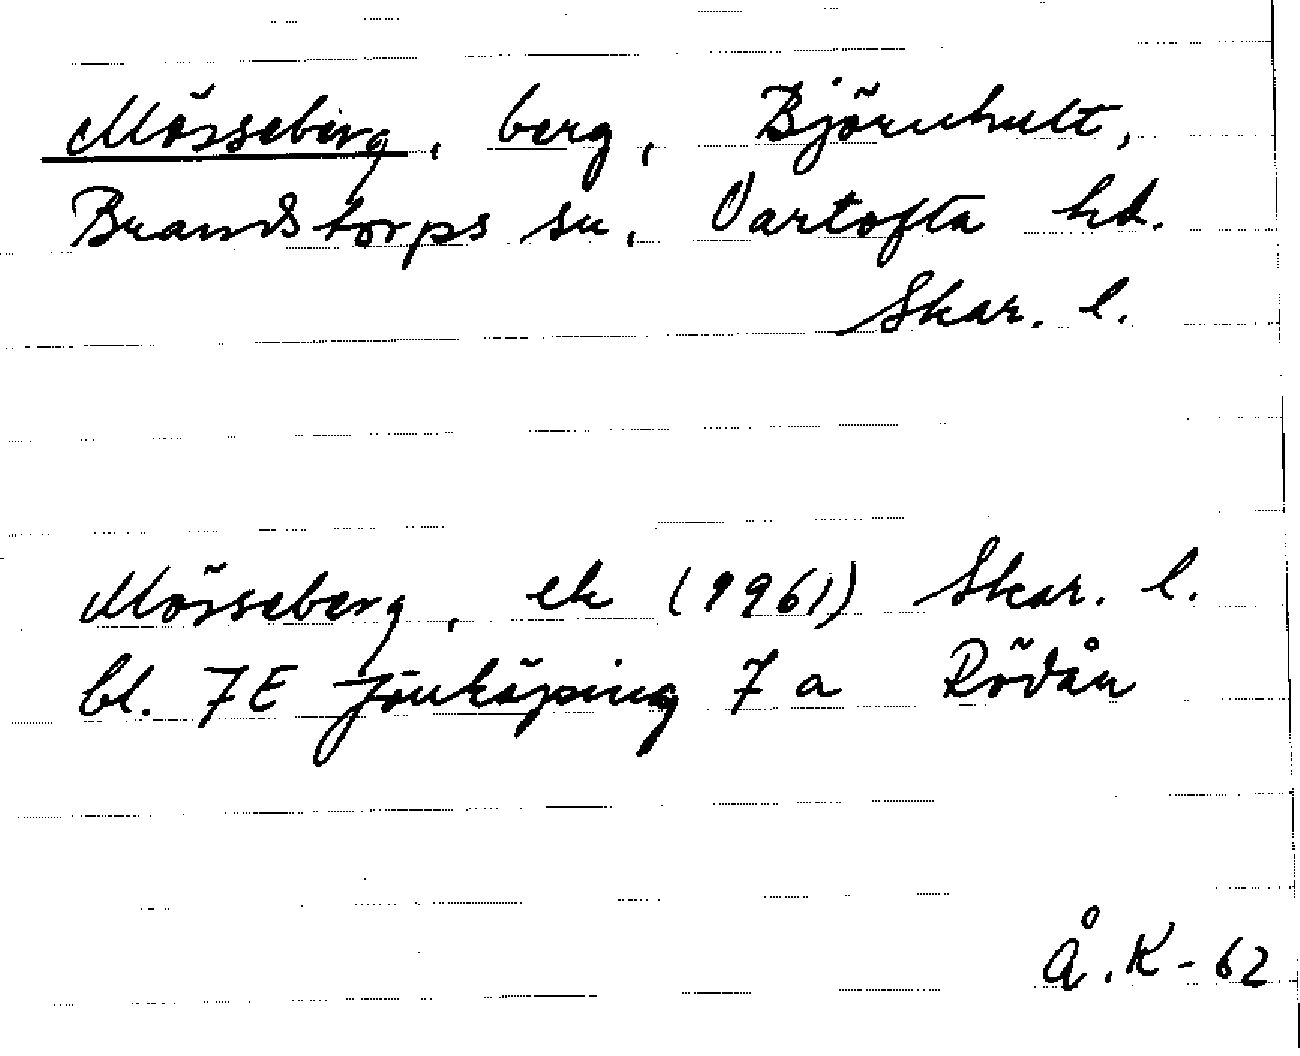 Mösseberg, berg, Björnhult,
Brandstorps sn, Vartofta hd.
Skar. l.
Mösseberg, ek (1961) Skar. l.
bl. 7E Jönköping 7 a Rödån
Å.K-62